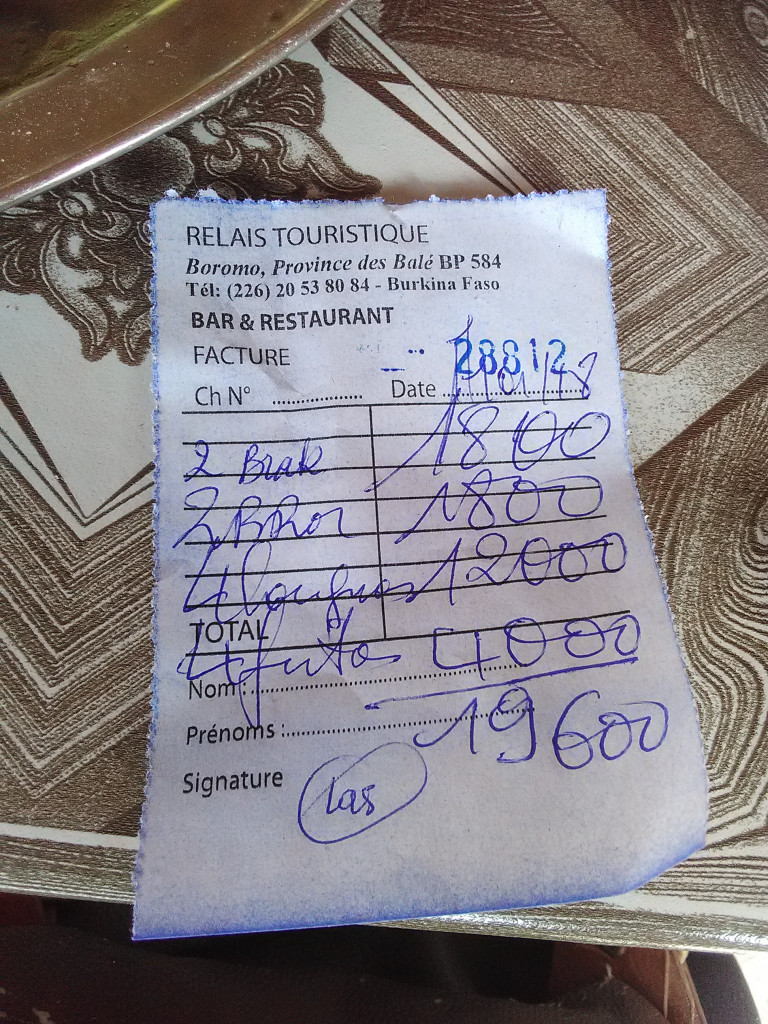 RELAIS TOURISTIQUE
Boromo, Province des Balé BP 584
Tél: (226) 20 53 80 84 - Burkina Faso
BAR & RESTAURANT
FACTURE 28812
Ch N° .................... Date ....................
2 Brak 1800
2 1800
4 12000
TOTAL
4 4000
Nom :
Prénoms : 19600
Signature